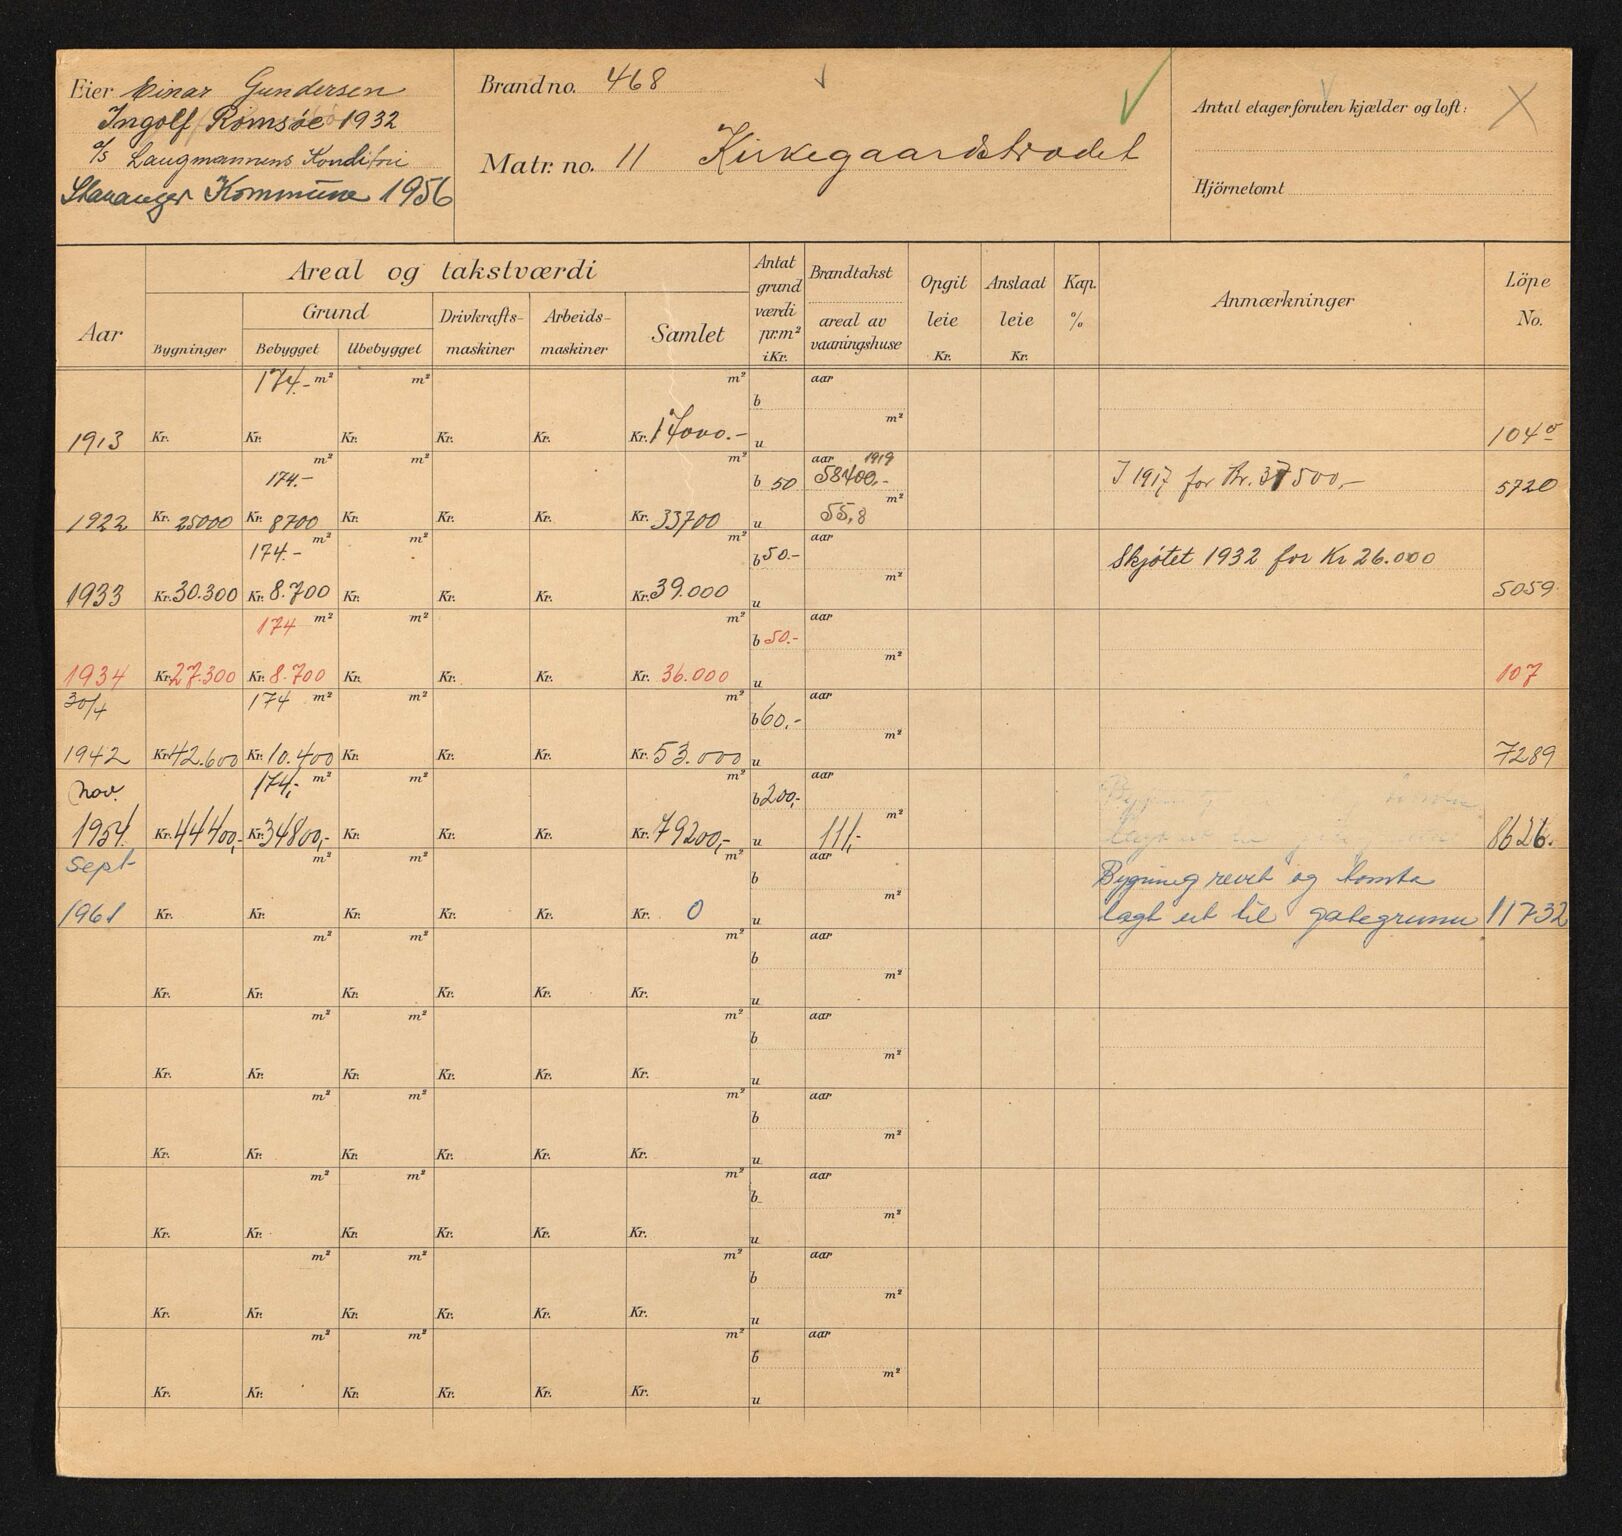 Eier Einar Gundersen
Ingolf Romsøe 1932
a/s Laugmannens Konditori
Stavanger Kommune 1956
Brand no. 468
Matr. no. 11 Kirkegaardstrædet
Antal etager foruten kjælder og loft:
Hjörnetomt
Aar
Areal og takstværdi
Grund
Bygninger Bebygget Ubebygget
Drivkrafts-maskiner
Arbeids-maskiner
Samlet
Antat grund værdi pr.m² i Kr.
Brandtakst
areal av vaaningshuse
Opgit leie Kr.
Anslaat leie Kr.
Kap. %
Anmærkninger
Löpe No.
174.- m² m² m² aar
b m²
1913 Kr. Kr. Kr. Kr. Kr. Kr. 17000.- u 104
m² m² m² aar 1919
174.- b 50 58400,- m² I 1917 for Kr. 37500,- 5720
1922 Kr. 25000 Kr. 8700 Kr. Kr. Kr. Kr. 33700 u 55,8
174.- m² m² m² aar
b 50.- m² Skjøtet 1932 for Kr 26.000
1933 Kr. 30.300 Kr. 8.700 Kr. Kr. Kr. Kr. 39.000 u 5059.
174 m² m² m² aar
b 50.- m²
1934 Kr. 27.300 Kr. 8.700 Kr. Kr. Kr. Kr. 36.000 u 107
30/4 174 m² m² m² aar
b 60,- m²
1942 Kr. 42.600 Kr. 10.400 Kr. Kr. Kr. Kr. 53.000 u 7289
nov. 174,- m² m² m² aar
b 200,- m²
1954. Kr. 44400,- Kr. 34800,- Kr. Kr. Kr. Kr. 79200,- u 111,- 8626.
Sept m² m² m² aar
b m² Bygning revet og tomta
1961 Kr. Kr. Kr. Kr. Kr. Kr. 0 u lagt ut til gategrunn 11732
m² m² m² aar
b m²
Kr. Kr. Kr. Kr. Kr. Kr. u
m² m² m² aar
b m²
Kr. Kr. Kr. Kr. Kr. Kr. u
m² m² m² aar
b m²
Kr. Kr. Kr. Kr. Kr. Kr. u
m² m² m² aar
b m²
Kr. Kr. Kr. Kr. Kr. Kr. u
m² m² m² aar
b m²
Kr. Kr. Kr. Kr. Kr. Kr. u
m² m² m² aar
b m²
Kr. Kr. Kr. Kr. Kr. Kr. u